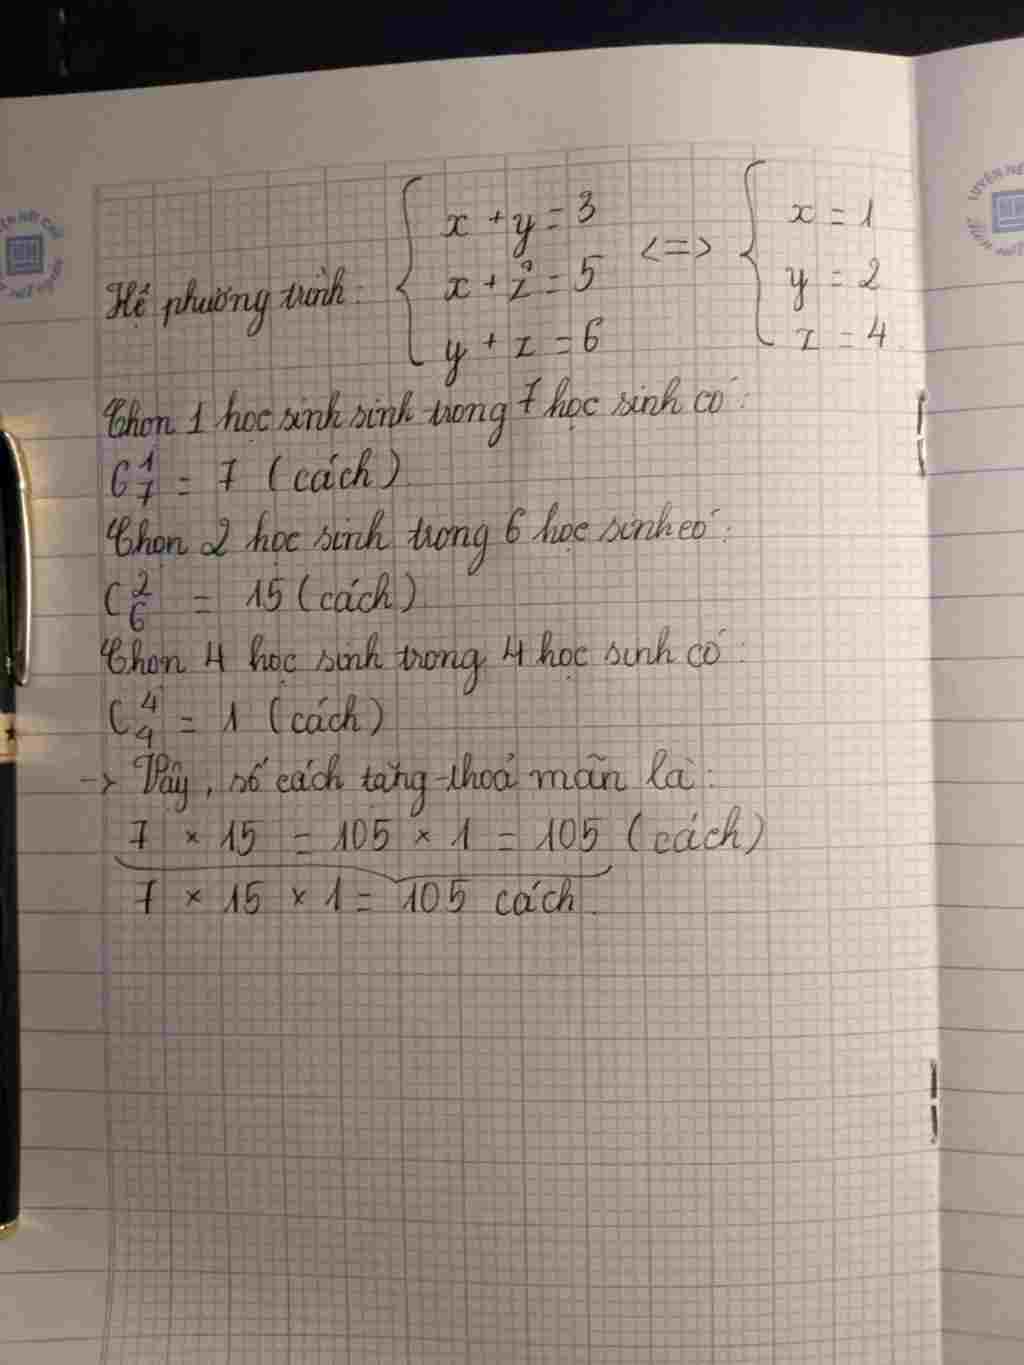 Hệ phương trình: { x + y = 3 <=> { x = 1
x + z = 5 y = 2
y + z = 6 z = 4.
Chọn 1 học sinh sinh trong 7 học sinh có:
C 1 7 = 7 (cách)
Chọn 2 học sinh trong 6 học sinh có:
C 2 6 = 15 (cách)
Chọn 4 học sinh trong 4 học sinh có:
C 4 4 = 1 (cách)
-> Vậy, số cách tặng thoả mãn là:
7 × 15 = 105 × 1 = 105 (cách)
7 × 15 × 1 = 105 cách.